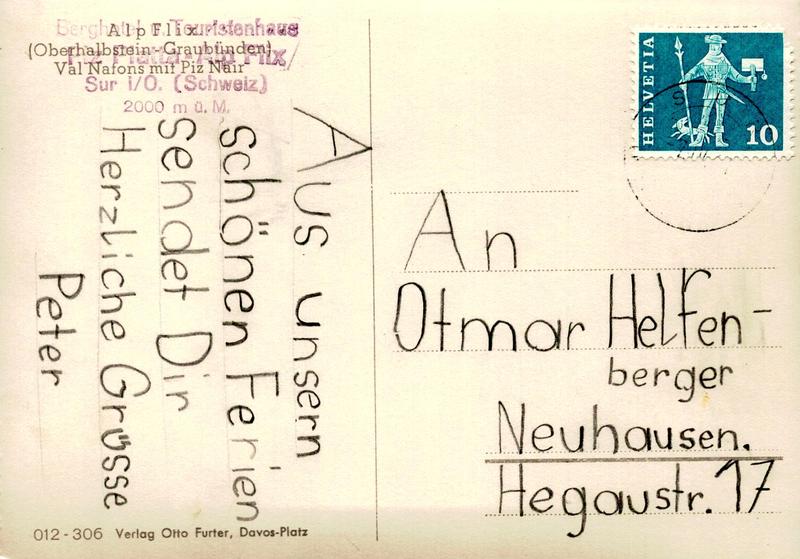 Berghotel u. Touristenhaus
Alp Flix
(Oberhalbstein-Graubünden)
Piz Platta, Alp Flix
Val Nafons mit Piz Nair
Sur i/O. (Schweiz)
2000 m ü. M.
Aus unsern
schönen Ferien
sendet Dir
Herzliche Grüsse
Peter
HELVETIA
10
An
Otmar Helfen-
berger
Neuhausen.
Hegaustr. 17
012-306 Verlag Otto Furter, Davos-Platz